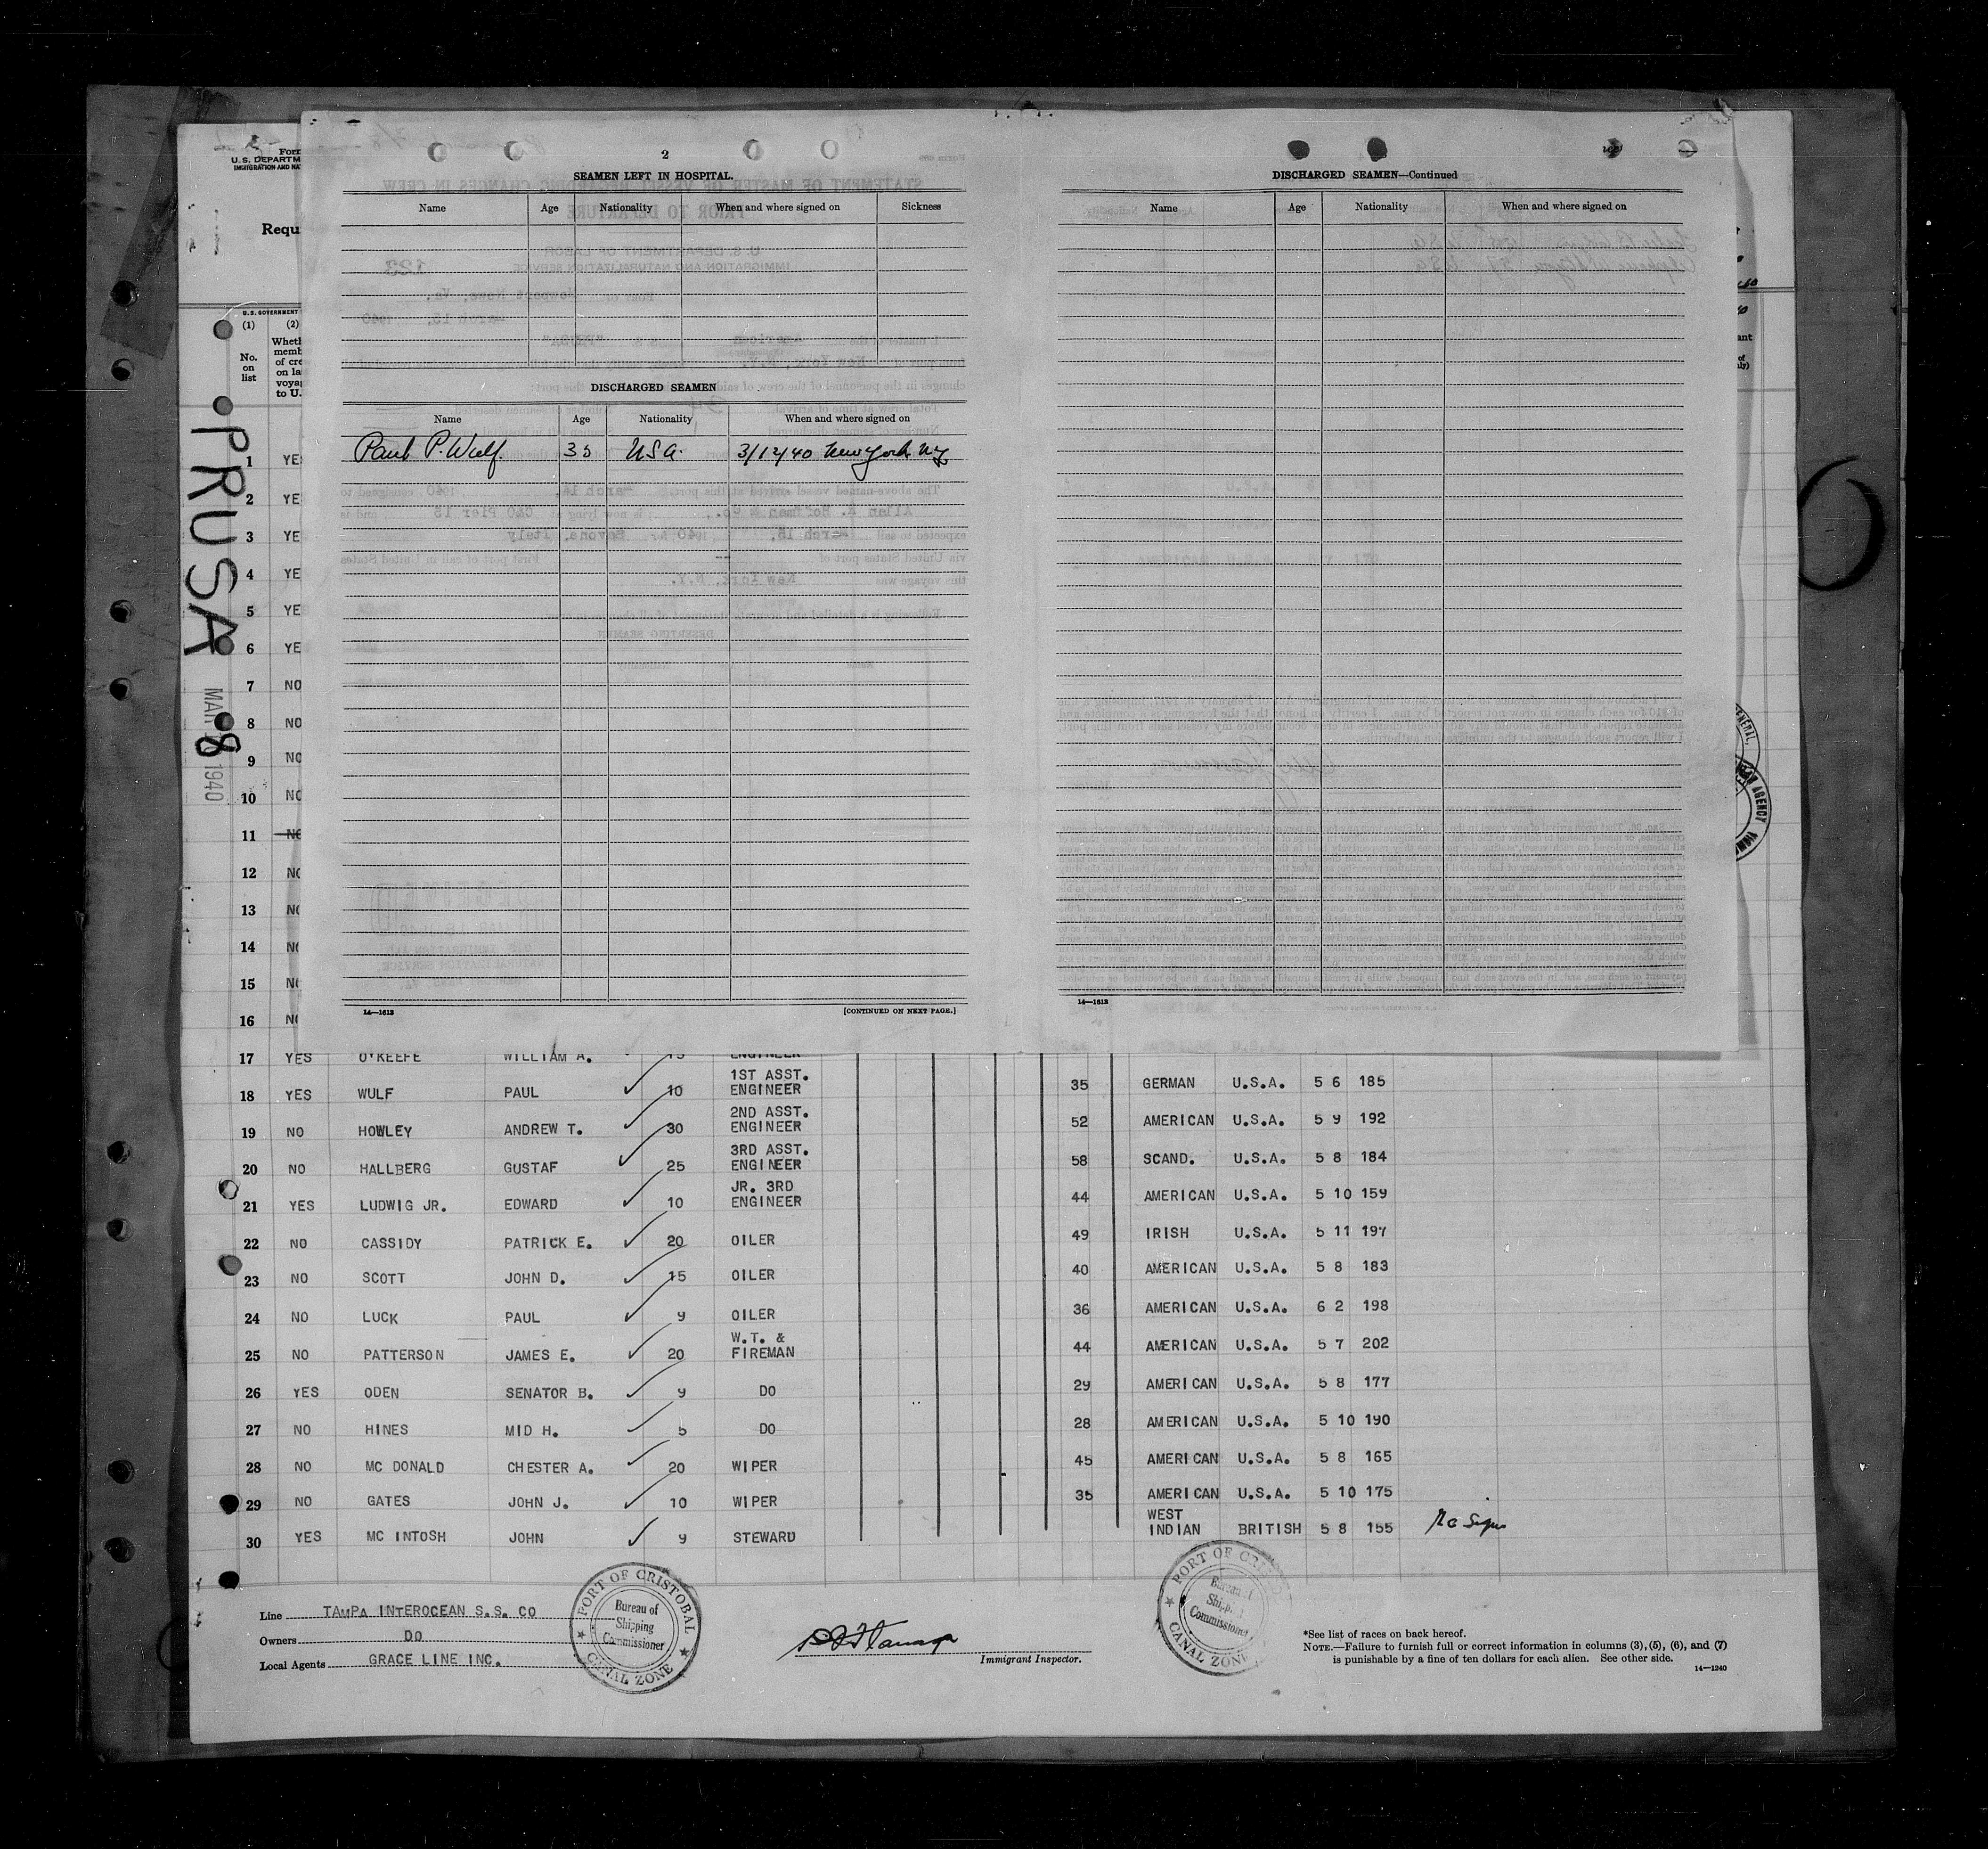 Form
U.S. DEPARTM
IMMIGRATION AND NA
Requ
PRUSA
MAR 8 1940
U.S. GOVERNMENT
(1) (2)
No. on list
Wheth
memb
of cre
on la
voyag
to U.
1 YE
2 YE
3 YE
4 YE
5 YE
6 YE
7 NO
8 NO
9 NO
10 NO
11 NO
12 NO
13 NO
14 NO
15 NO
16 NO
2
SEAMEN LEFT IN HOSPITAL.
Name Age Nationality When and where signed on Sickness
DISCHARGED SEAMEN
Name Age Nationality When and where signed on
Paul P. Wulf. 35 USA. 3/12/40 New York NY
14—1613 [CONTINUED ON NEXT PAGE.]
DISCHARGED SEAMEN—Continued
Name Age Nationality When and where signed on
14—1613
17 YES O'KEEFE WILLIAM A. 15 ENGINEER
18 YES WULF PAUL 10 1ST ASST. ENGINEER 35 GERMAN U.S.A. 5 6 185
19 NO HOWLEY ANDREW T. 30 2ND ASST. ENGINEER 52 AMERICAN U.S.A. 5 9 192
20 NO HALLBERG GUSTAF 25 3RD ASST. ENGINEER 58 SCAND. U.S.A. 5 8 184
21 YES LUDWIG JR. EDWARD 10 JR. 3RD ENGINEER 44 AMERICAN U.S.A. 5 10 159
22 NO CASSIDY PATRICK E. 20 OILER 49 IRISH U.S.A. 5 11 197
23 NO SCOTT JOHN D. 15 OILER 40 AMERICAN U.S.A. 5 8 183
24 NO LUCK PAUL 9 OILER 36 AMERICAN U.S.A. 6 2 198
25 NO PATTERSON JAMES E. 20 W.T. & FIREMAN 44 AMERICAN U.S.A. 5 7 202
26 YES ODEN SENATOR B. 9 DO 29 AMERICAN U.S.A. 5 8 177
27 NO HINES MID H. 5 DO 28 AMERICAN U.S.A. 5 10 190
28 NO MC DONALD CHESTER A. 20 WIPER 45 AMERICAN U.S.A. 5 8 165
29 NO GATES JOHN J. 10 WIPER 35 AMERICAN U.S.A. 5 10 175
30 YES MC INTOSH JOHN 9 STEWARD WEST INDIAN BRITISH 5 8 155
Line TAMPA INTEROCEAN S.S. CO
Owners DO
Local Agents GRACE LINE INC.
PORT OF CRISTOBAL
Bureau of
Shipping
Commissioner
CANAL ZONE
Immigrant Inspector.
PORT OF CRI
Bureau of
Shipping
Commissioner
CANAL ZONE
*See list of races on back hereof.
NOTE.—Failure to furnish full or correct information in columns (3), (5), (6), and (7)
is punishable by a fine of ten dollars for each alien. See other side.
14—1240